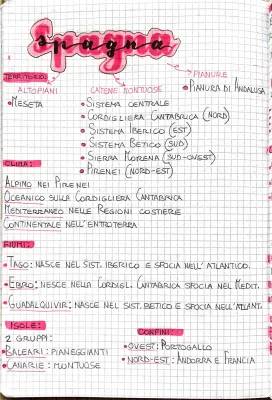 Spagna
TERRITORIO:
PIANURE
ALTOPIANI
CATENE MONTUOSE
• PIANURA DI ANDALUSA
• MESETA
• SISTEMA CENTRALE
• CORDIGLIERA CANTABRICA (NORD)
• SISTEMA IBERICO (EST)
• SISTEMA BETICO (SUD)
• SIERRA MORENA (SUD-OVEST)
• PIRENEI (NORD-EST)
CLIMA:
ALPINO NEI PIRENEI
OCEANICO SULLA CORDIGLIERA CANTABRICA
MEDITERRANEO NELLE REGIONI COSTIERE
CONTINENTALE NELL'ENTROTERRA
FIUMI:
• TAGO: NASCE NEL SIST. IBERICO E SFOCIA NELL'ATLANTICO.
• EBRO: NESCE NELLA CORDIGL. CANTABRICA SFOCIA NEL MEDIT.
• GUADALQUIVIR: NASCE NEL SIST. BETICO E SFOCIA NELL'ATLANT.
ISOLE:
2 GRUPPI:
BALEARI: PIANEGGIANTI
CANARIE: MONTUOSE
CONFINI:
• OVEST: PORTOGALLO
• NORD-EST: ANDORRA E FRANCIA